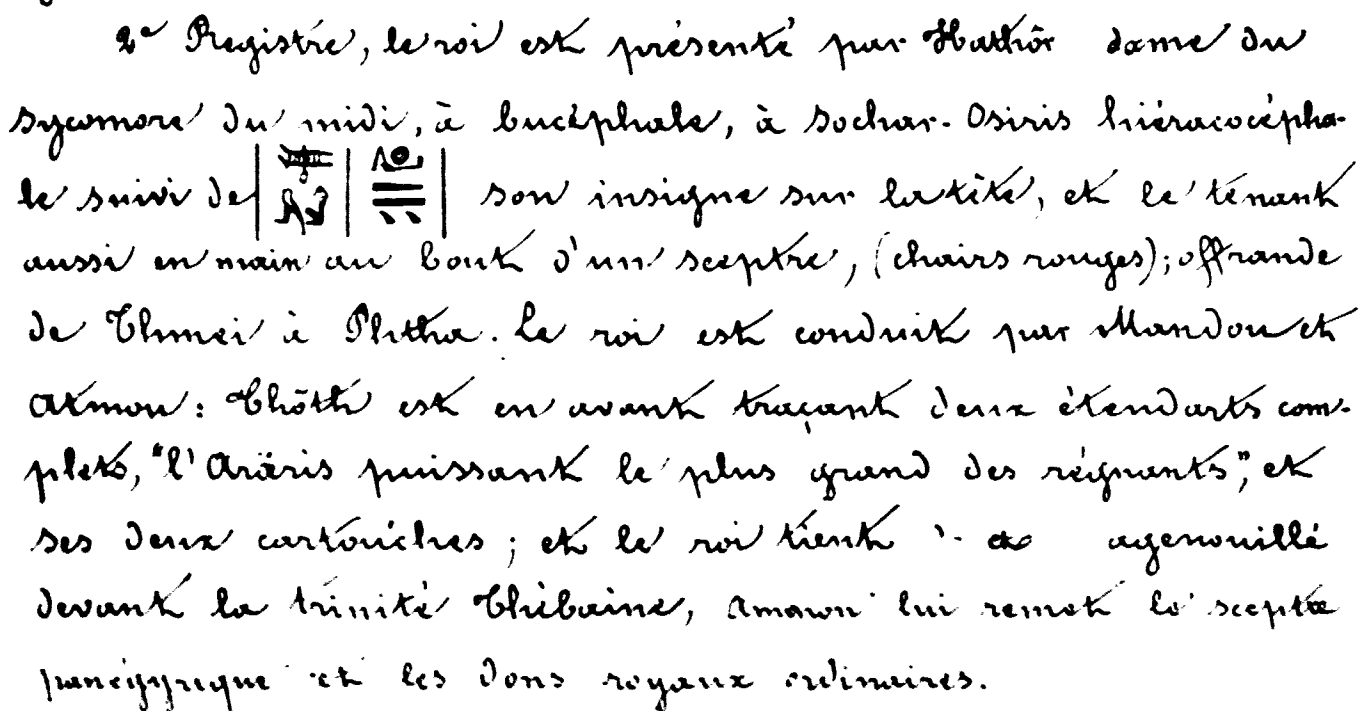 2e Registre, le roi est présenté par Hathôr dame du
sycomore du midi, à bucéphale, à Sochar-Osiris hiéracocépha-
le suivi de son insigne sur la tête, et le tenant
aussi en main au bout d'un sceptre, (chairs rouges); offrande
de Thmei à Phtha. Le roi est conduit par Mandou et
Atmou: Thôth est en avant traçant deux étendarts com-
plets, "l'Aröéris puissant le plus grand des régnants", et
ses deux cartouches; et le roi tient agenouillé
devant la trinité Thébaine, Amaon lui remet le sceptre
panégyrique et les dons royaux ordinaires.